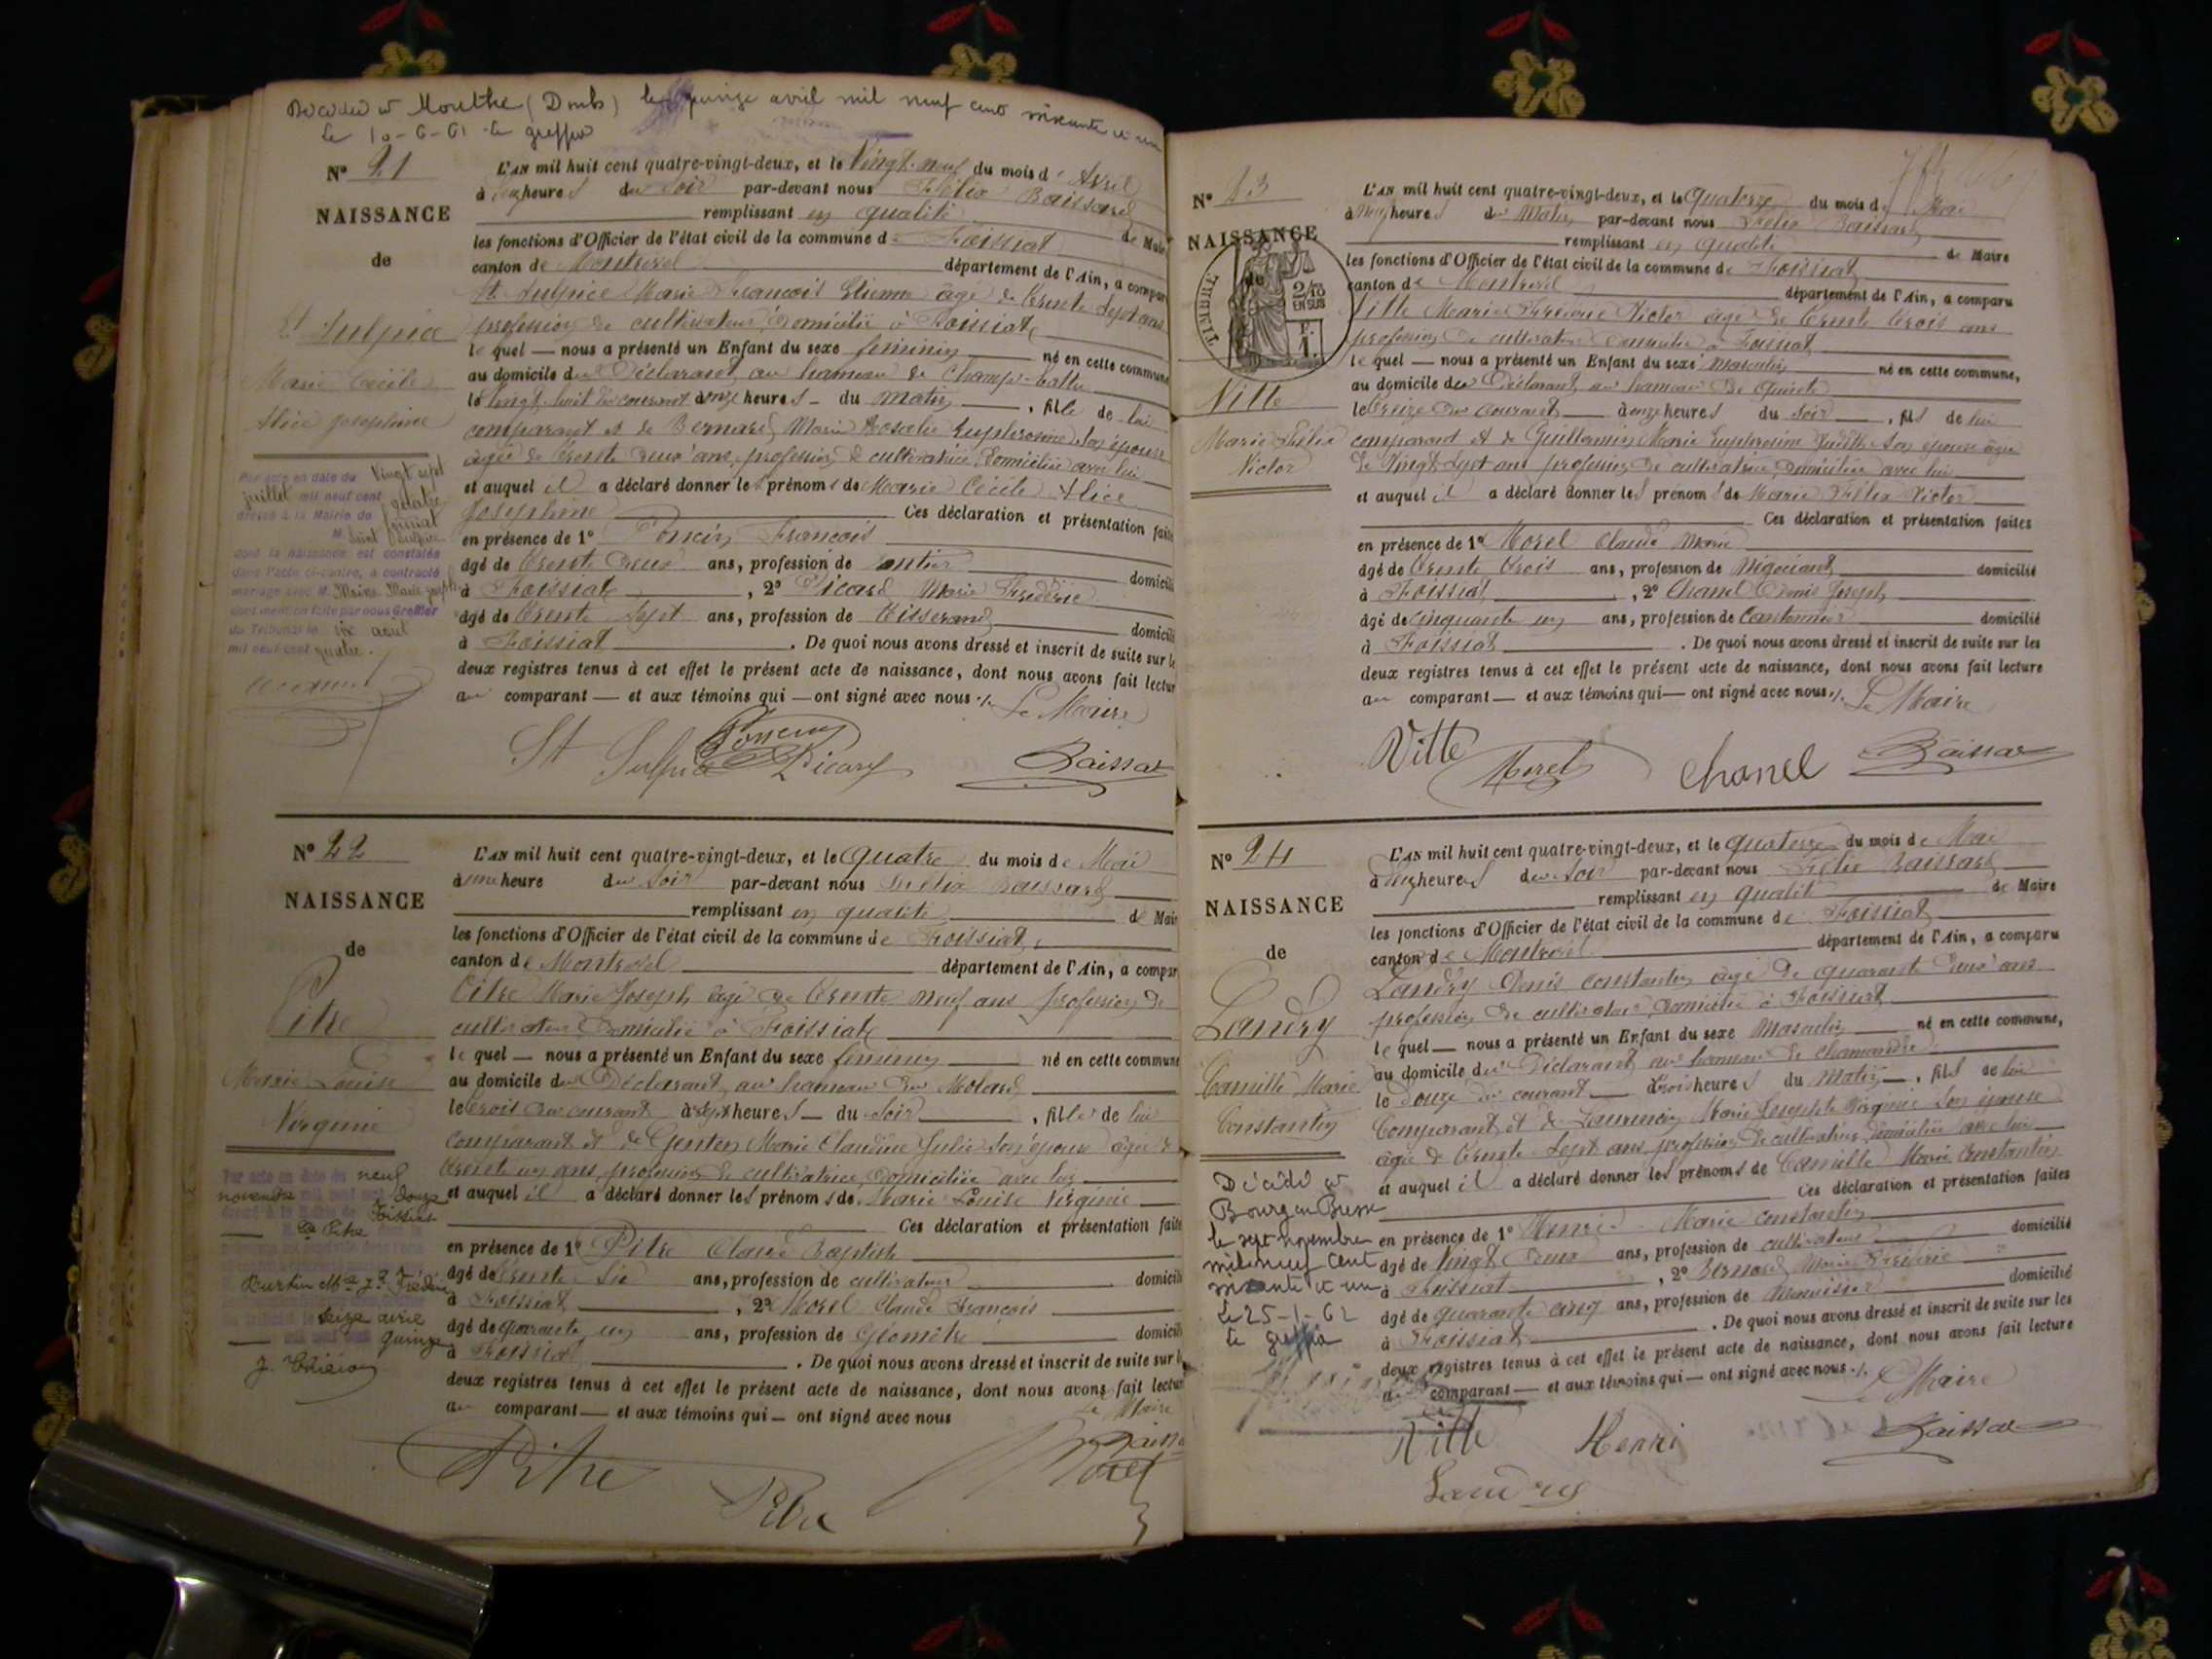 Décédée à Mouthe (Doubs) le quinze avril mil neuf cent soixante et un
Le 10-6-61 Le greffier
N° 21
NAISSANCE
de
St Sulpice
Marie Cécile
Alice Joséphine
Par acte en date du Vingt sept
juillet mil neuf cent quatre
dressé à la Mairie de Foissiat
M. Saint Sulpice
dont la naissance est constatée
dans l'acte ci-contre, a contracté
mariage avec M. Marie Joseph
dont mention faite par nous Greffier
du Tribunal le six août
mil neuf cent quatre.
L'AN mil huit cent quatre-vingt-deux, et le Vingt-neuf du mois d'Avril
à heures du Soir par-devant nous Félix Baissard
remplissant en qualité de Maire
les fonctions d'Officier de l'état civil de la commune de Foissiat
canton de Montrevel département de l'Ain, a compar
St Sulpice Marie François Etienne âgé de trente sept ans
profession de cultivateur domicilié à Foissiat
lequel — nous a présenté un Enfant du sexe féminin né en cette commune
au domicile du Déclarant au hameau de
le vingt huit du courant à onze heures du matin, fille de lui
comparant et de Bernard Marie Rosalie Euphrosine son épouse
âgée de trente deux ans, profession de cultivatrice, domiciliée avec lui
et auquel il a déclaré donner les prénoms de Marie Cécile Alice
Joséphine Ces déclaration et présentation faite
en présence de 1° Poncin François
âgé de trente deux ans, profession de rentier domicili
à Foissiat, 2° Picard Marie Frédéric
âgé de trente sept ans, profession de Tisserand domicili
à Foissiat. De quoi nous avons dressé et inscrit de suite sur le
deux registres tenus à cet effet le présent acte de naissance, dont nous avons fait lectur
au comparant — et aux témoins qui — ont signé avec nous Le Maire
St Sulpice Poncin Picard Baissard
N° 22
NAISSANCE
de
Pitre
Marie Louise
Virginie
Par acte en date du neuf
novembre mil neuf cent douze
dressé à la Mairie de Foissiat
Pitre
Burtin
seize avril
quinze
L'AN mil huit cent quatre-vingt-deux, et le quatre du mois de Mai
à une heure du Soir par-devant nous Félix Baissard
remplissant en qualité de Mair
les fonctions d'Officier de l'état civil de la commune de Foissiat
canton de Montrevel département de l'Ain, a compar
Pitre Marie Joseph âgé de trente neuf ans profession de
cultivateur domicilié à Foissiat
lequel — nous a présenté un Enfant du sexe féminin né en cette commune
au domicile du Déclarant au hameau du Molard
le trois du courant à sept heures du Soir, fille de lui
comparant et de Genten Marie Claudine Julie son épouse âgée de
trente un ans, profession de cultivatrice, domiciliée avec lui
et auquel il a déclaré donner les prénoms de Marie Louise Virginie
Ces déclaration et présentation faite
en présence de 1° Pitre Claude Baptiste
âgé de trente six ans, profession de cultivateur domicili
à Foissiat, 2° Morel Claude François
âgé de quarante un ans, profession de Géomètre domicili
à Foissiat. De quoi nous avons dressé et inscrit de suite sur le
deux registres tenus à cet effet le présent acte de naissance, dont nous avons fait lectur
au comparant — et aux témoins qui — ont signé avec nous Le Maire
Pitre Pitre Morel
N° 23
NAISSANCE
de
TIMBRE
2/10
EN SUS
Vitte
Marie Félix
Victor
L'AN mil huit cent quatre-vingt-deux, et le Quatorze du mois de Mai
à heures du Matin par-devant nous Félix Baissard
remplissant en qualité de Maire
les fonctions d'Officier de l'état civil de la commune de Foissiat
canton de Montrevel département de l'Ain, a comparu
Vitte Marie Frédéric Victor âgé de trente trois ans
profession de cultivateur domicilié à Foissiat
lequel — nous a présenté un Enfant du sexe masculin né en cette commune,
au domicile du Déclarant au hameau de
le treize du courant à onze heures du Soir, fils de lui
comparant et de Guillermin Marie Euphrosine Judith son épouse âgée
de Vingt sept ans profession de cultivatrice, domiciliée avec lui
et auquel il a déclaré donner les prénoms de Marie Félix Victor
Ces déclaration et présentation faites
en présence de 1° Morel Claude Marie
âgé de trente trois ans, profession de Négociant domicilié
à Foissiat, 2° Chanel Denis Joseph
âgé de cinquante un ans, profession de Cantonnier domicilié
à Foissiat. De quoi nous avons dressé et inscrit de suite sur les
deux registres tenus à cet effet le présent acte de naissance, dont nous avons fait lecture
au comparant — et aux témoins qui — ont signé avec nous Le Maire
Vitte Morel Chanel Baissard
N° 24
NAISSANCE
de
Landry
Camille Marie
Constantin
Décédé à
Bourg en Bresse
le sept novembre
mil neuf cent
soixante et un
Le 25-1-62
Le greffier
L'AN mil huit cent quatre-vingt-deux, et le quatorze du mois de Mai
à heures du Soir par-devant nous Félix Baissard
remplissant en qualité de Maire
les fonctions d'Officier de l'état civil de la commune de Foissiat
canton de Montrevel département de l'Ain, a comparu
Landry Denis Constantin âgé de quarante deux ans
profession de cultivateur, domicilié à Foissiat
lequel — nous a présenté un Enfant du sexe Masculin né en cette commune,
au domicile du Déclarant au hameau de Chamandre
le Douze du courant à trois heures du Matin, fils de lui
Comparant et de Laurencin Marie Josephte Virginie son épouse
âgée de trente sept ans, profession de cultivatrice domiciliée avec lui
et auquel il a déclaré donner les prénoms de Camille Marie Constantin
Ces déclaration et présentation faites
en présence de 1° Henri Marie Constantin
âgé de Vingt deux ans, profession de cultivateur domicilié
à Foissiat, 2° Bernard Marie Frédéric
âgé de quarante cinq ans, profession de Menuisier domicilié
à Foissiat. De quoi nous avons dressé et inscrit de suite sur les
deux registres tenus à cet effet le présent acte de naissance, dont nous avons fait lecture
au comparant — et aux témoins qui — ont signé avec nous Le Maire
Vitte Henri Baissard
Landry